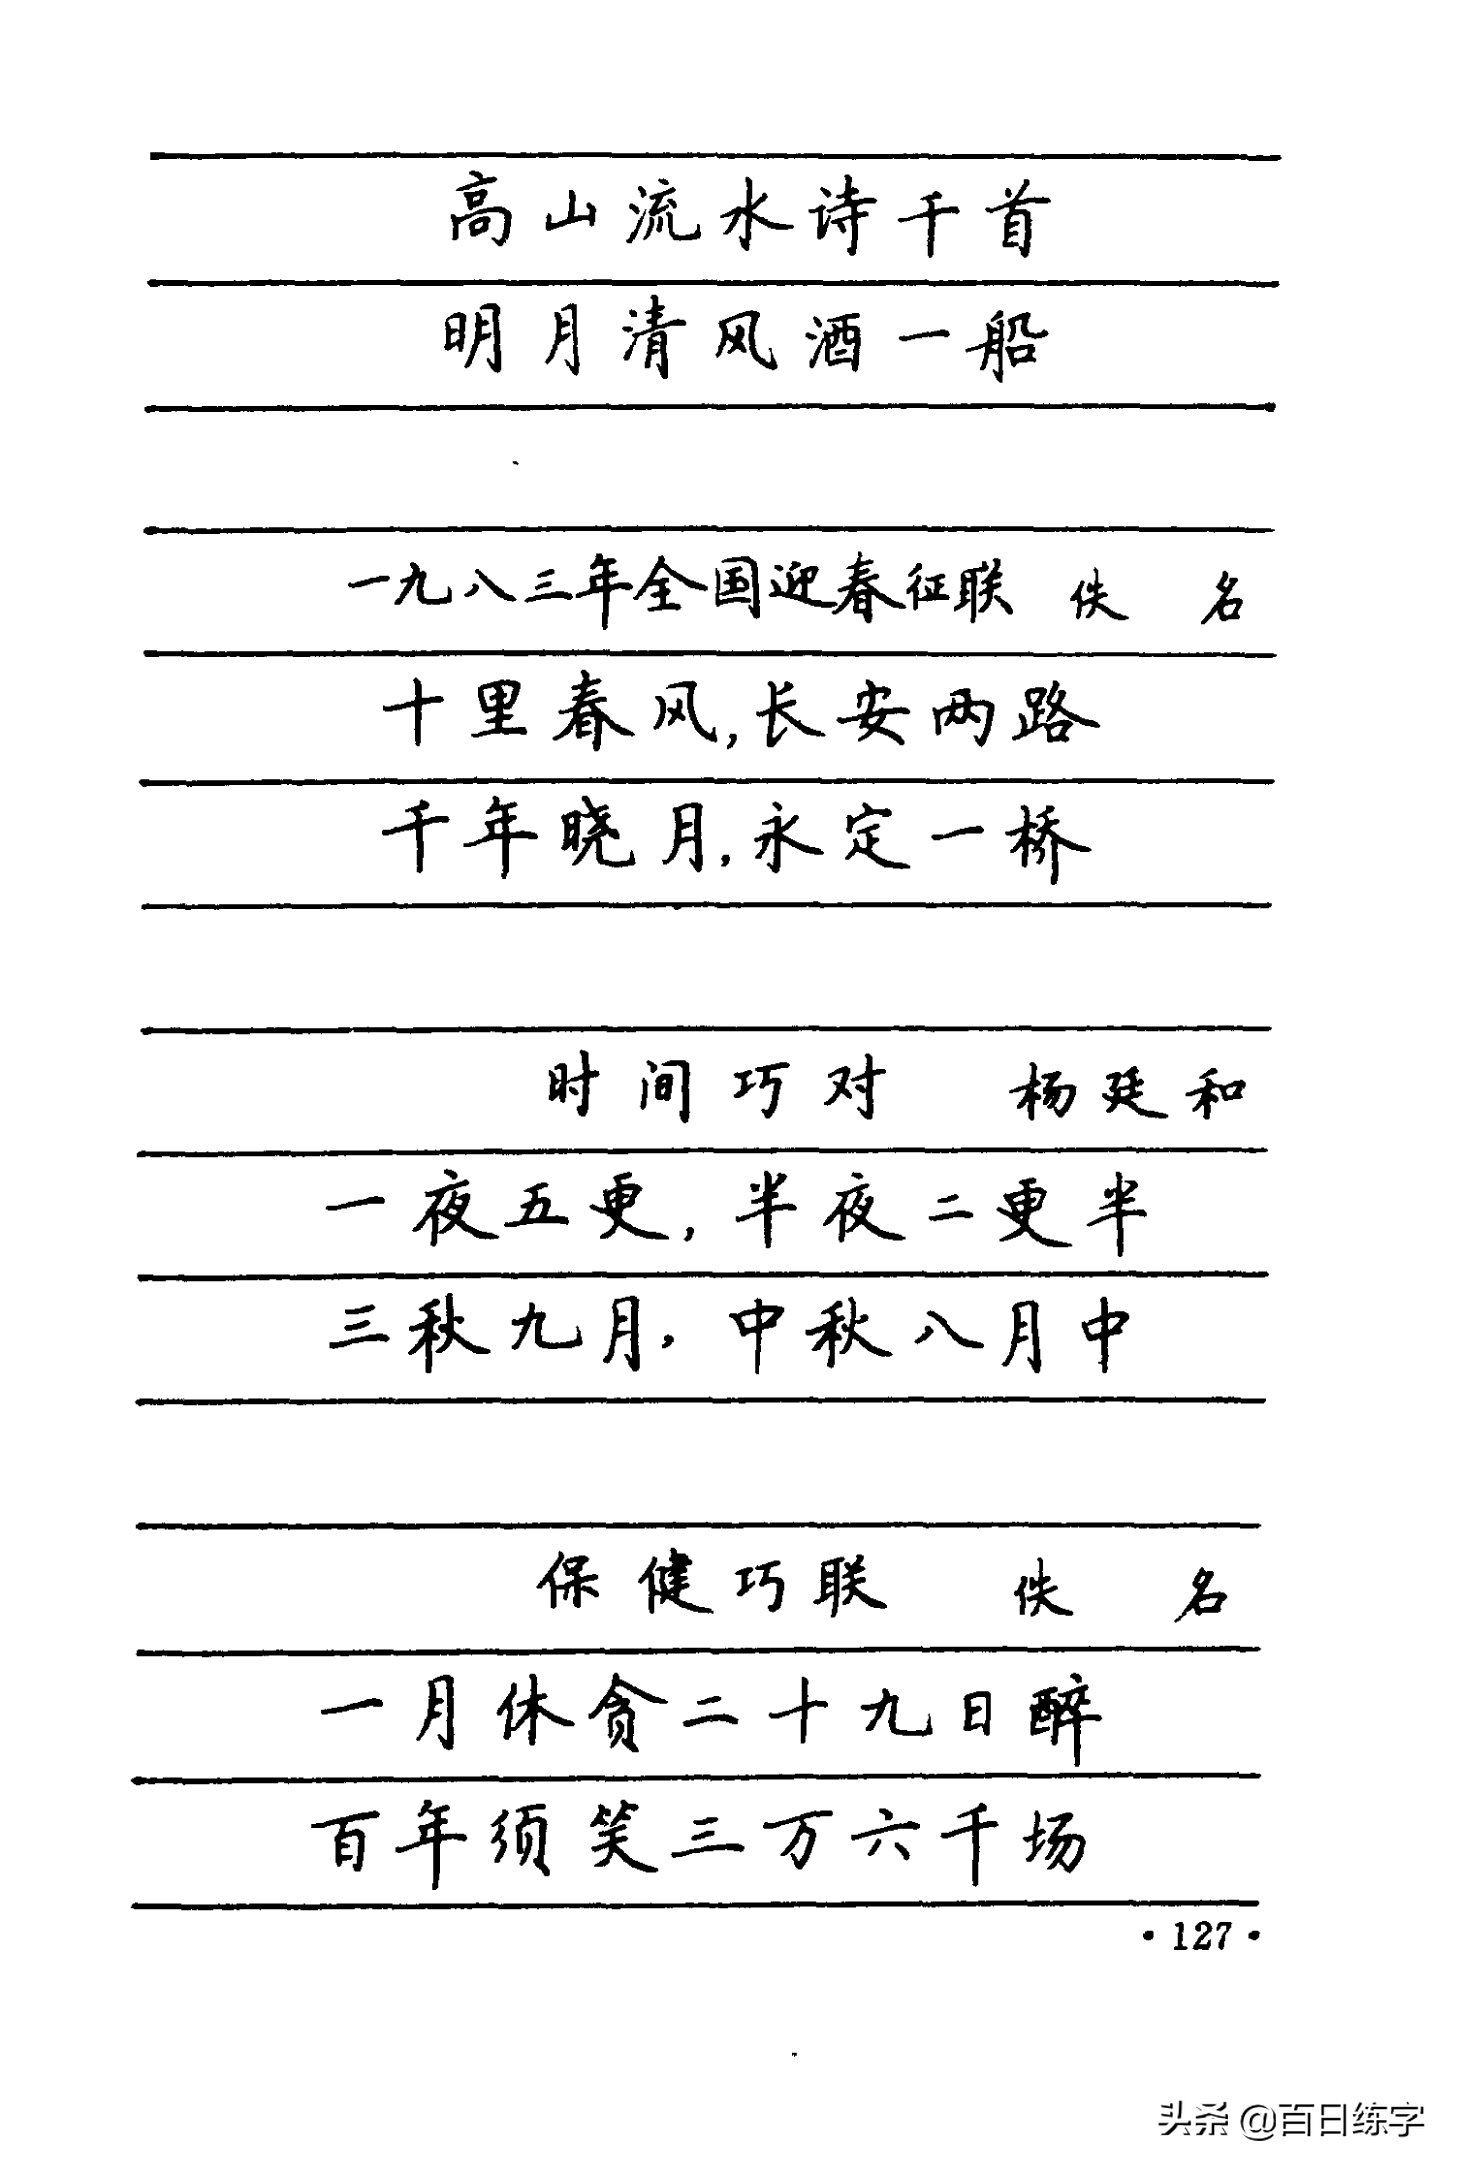 高山流水诗千首
明月清风酒一船
一九八三年全国迎春征联 佚 名
十里春风,长安两路
千年晓月,永定一桥
时间巧对 杨廷和
一夜五更,半夜二更半
三秋九月,中秋八月中
保健巧联 佚 名
一月休贪二十九日醉
百年须笑三万六千场
·127·
头条 @百日练字